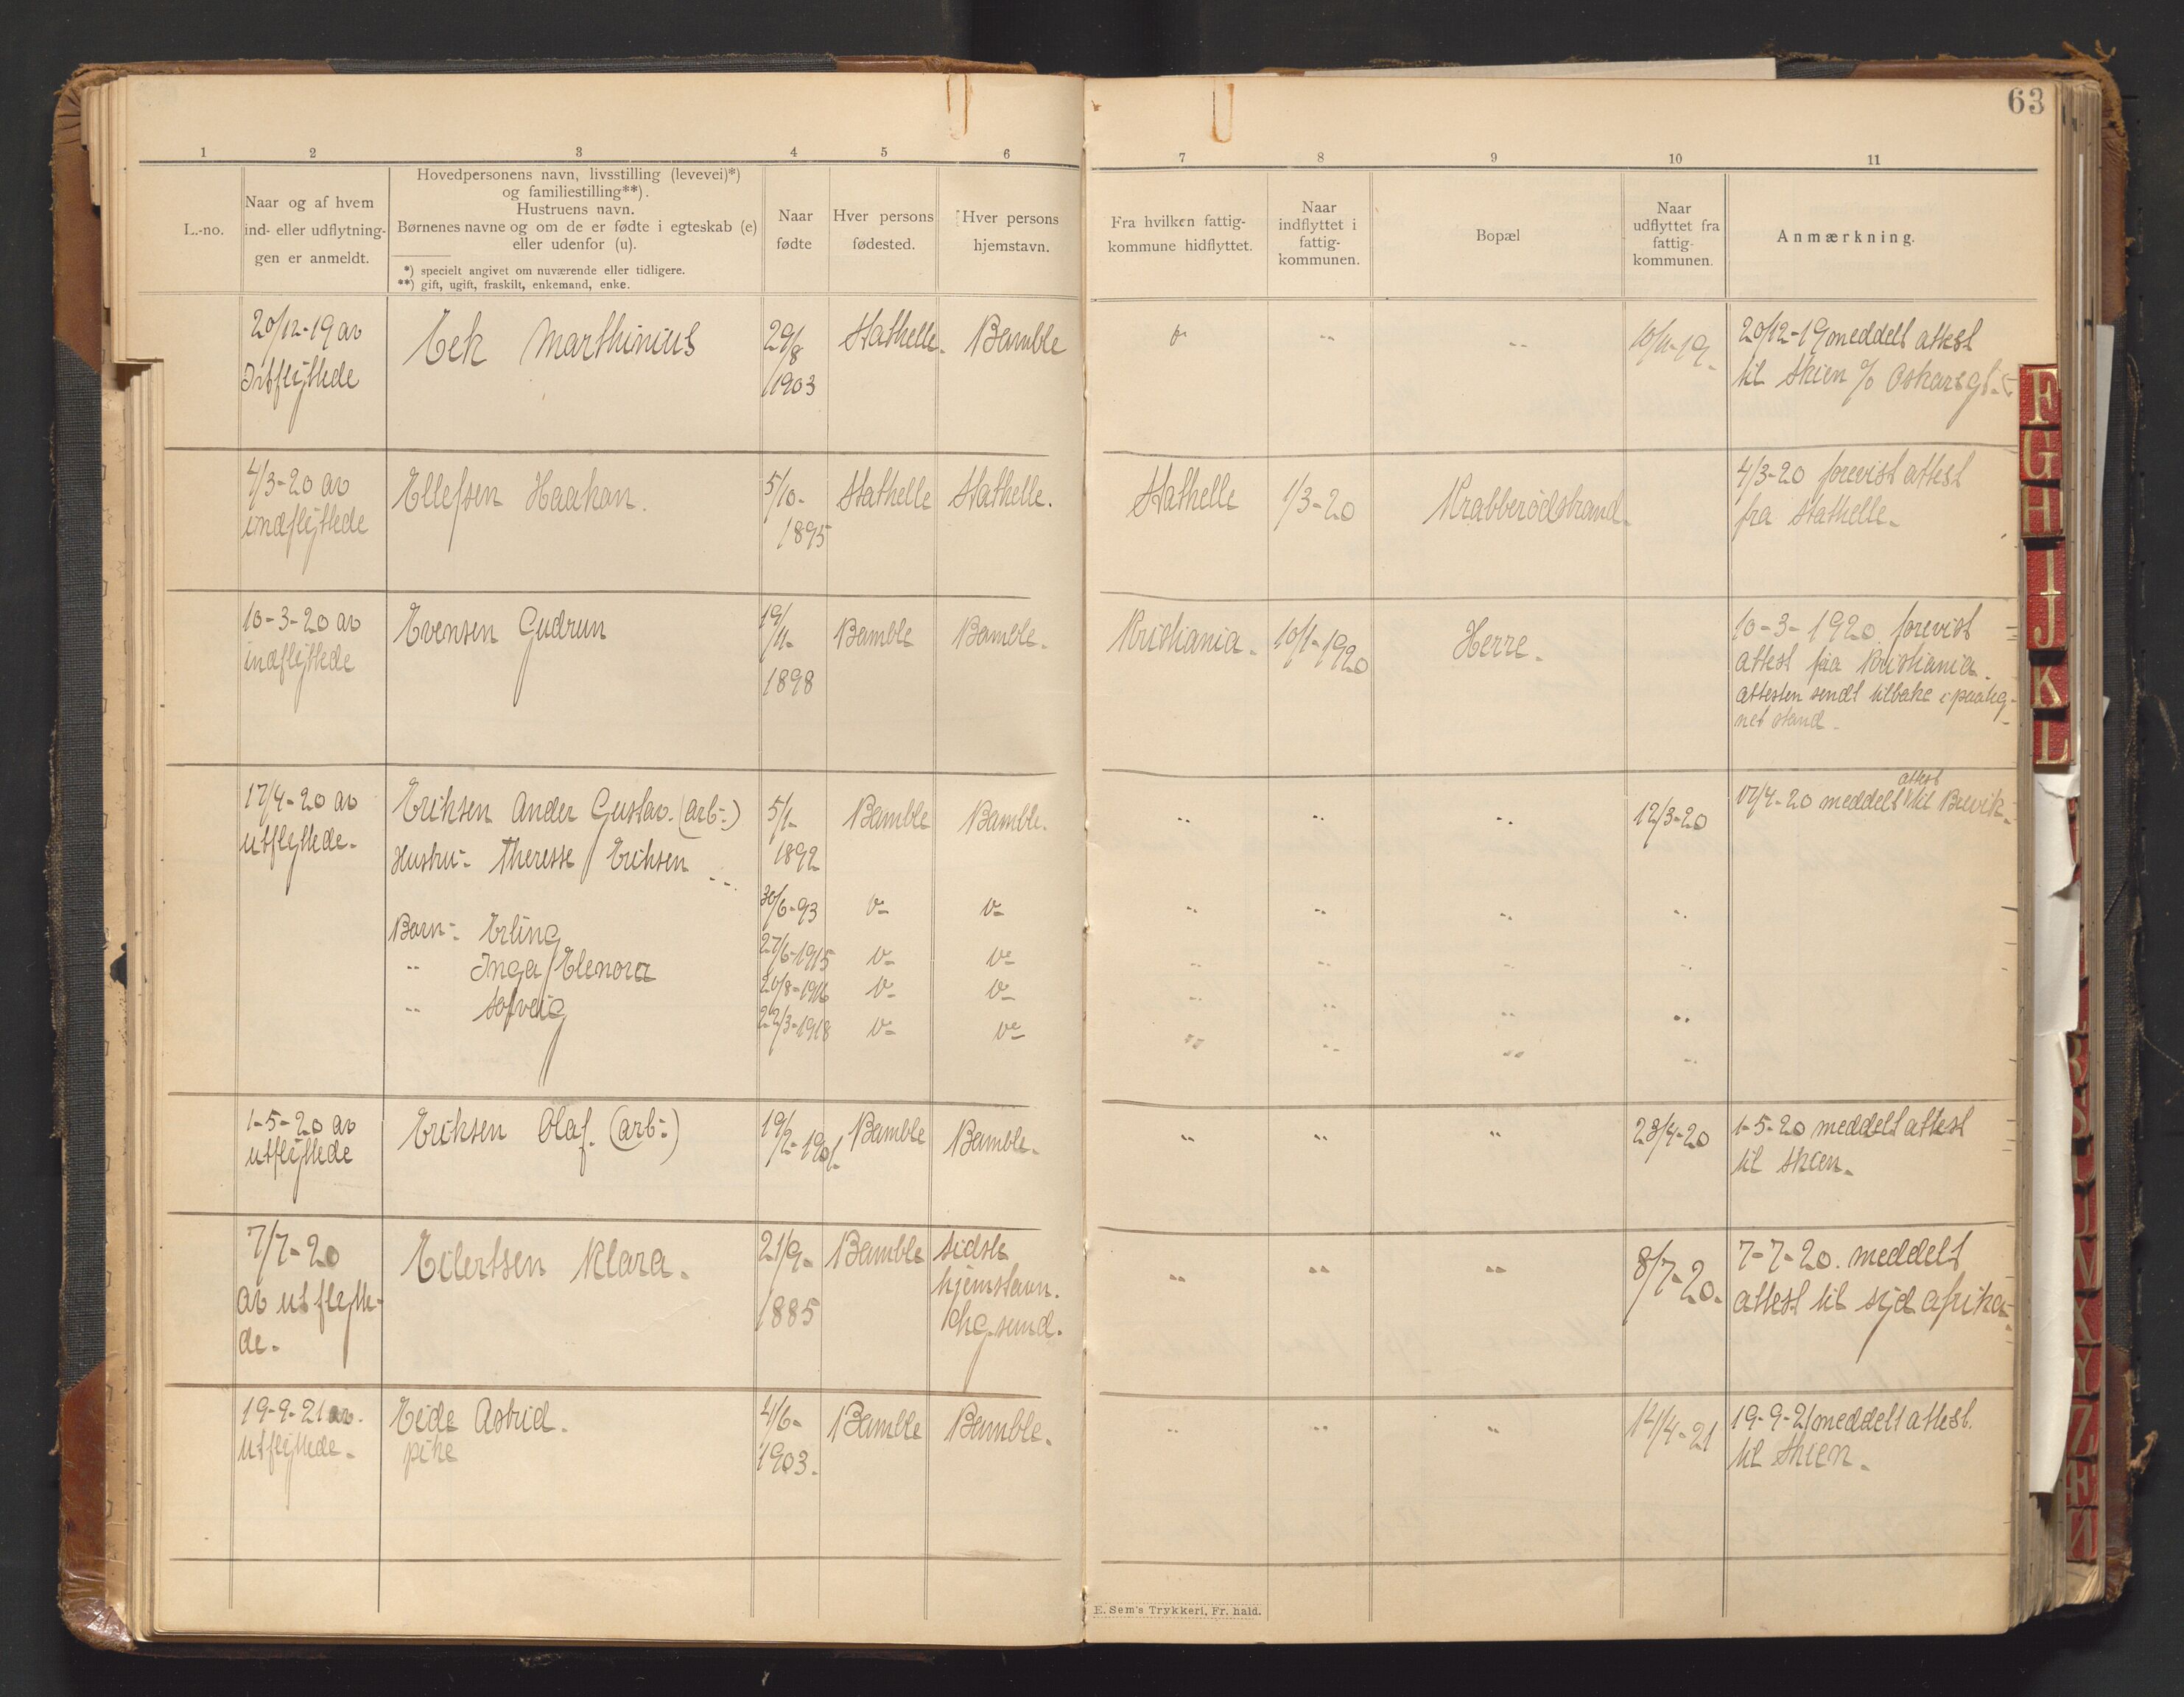 63
1 2 3 4 5 6 7 8 9 10 11
L.-no.
Naar og af hvem
ind- eller udflytnin-
gen er anmeldt.
Hovedpersonens navn, livsstilling (levevei)*)
og familiestilling**).
Hustruens navn.
Børnenes navne og om de er fødte i egteskab (e)
eller udenfor (u).
*) specielt angivet om nuværende eller tidligere.
**) gift, ugift, fraskilt, enkemand, enke.
Naar
fødte
Hver persons
fødested.
Hver persons
hjemstavn.
Fra hvilken fattig-
kommune hidflyttet.
Naar
indflyttet i
fattig-
kommunen.
Bopæl
Naar
udflyttet fra
fattig-
kommunen.
Anmærkning.
20/12-19 av
Utflyttede
Eek Marthinius
29/8
1903
Stathelle.
Bamble
10/11-19.
20/12-19 meddelt attest
til Skien % Oskarsgt.
4/3-20 av
indflyttede
Ellefsen Haakan.
5/10-
1895
Stathelle
Stathelle.
Stathelle
1/3-20
Krabberødstrand.
4/3-20 forevist attest
fra Stathelle.
10-3-20 av
indflyttede
Evensen Gudrun
19/11-
1898
Bamble
Bamble.
Kristiania.
10/1-1920
Herre.
10-3-1920. forevist
attest fra Kristiania.
attesten sendt tilbake i paateg-
net stand.
17/4-20 av
utflyttede.
Eriksen Ander Gustav. (arb:)
5/1-
1892
Bamble
Bamble.
12/3-20
attest
17/4-20 meddelt til Brevik.
Hustru: Theresse Eriksen
30/6-93
Barn: Erling
27/6-1915
" Inga Elenora
20/8-1916
" Solveig
22/3-1918
1-5-20 av
utflyttede
Eriksen Olaf. (arb:)
19/2-1901
Bamble
Bamble.
" " "
23/4-20
1-5-20 meddelt attest
til Skien.
7/7-20
av utflytte-
de.
Eilertsen Klara.
21/9-
1885
Bamble
sidste
hjemstavn.
" " "
8/7-20.
7-7-20. meddelt
attest til syd afrika
19-9-21 av.
Utflyttede.
Eide Astrid.
pike
4/6-
1903.
Bamble
Bamble.
" " "
12/4-21
19-9-21 meddelt attest.
til Skien.
E. Sem's Trykkeri, Fr. hald.
F
G
H
I
J
K
L
V
X
Y
Z
Æ
Ø